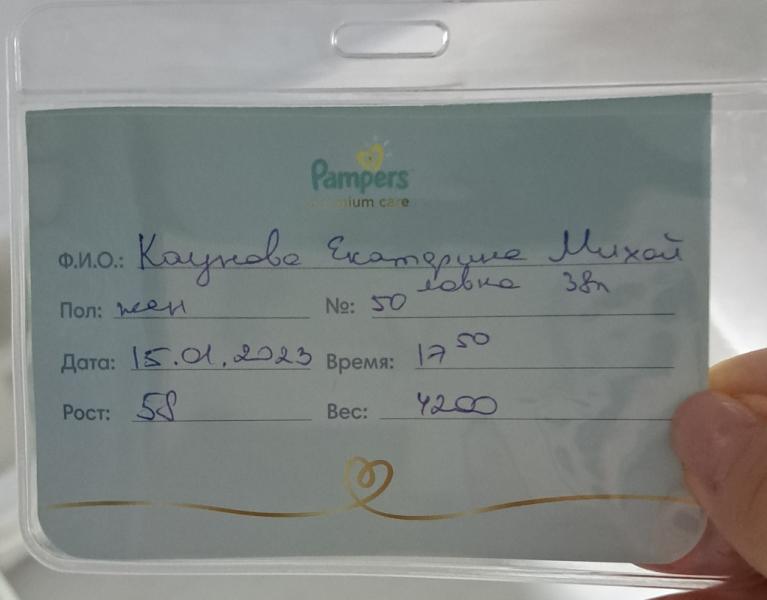 Pampers
premium care
Ф.И.О.: Каунова Екатерина Михай
ловна 38л
Пол: жен №: 50
Дата: 15.01.2023 Время: 17 50
Рост: 58 Вес: 4200